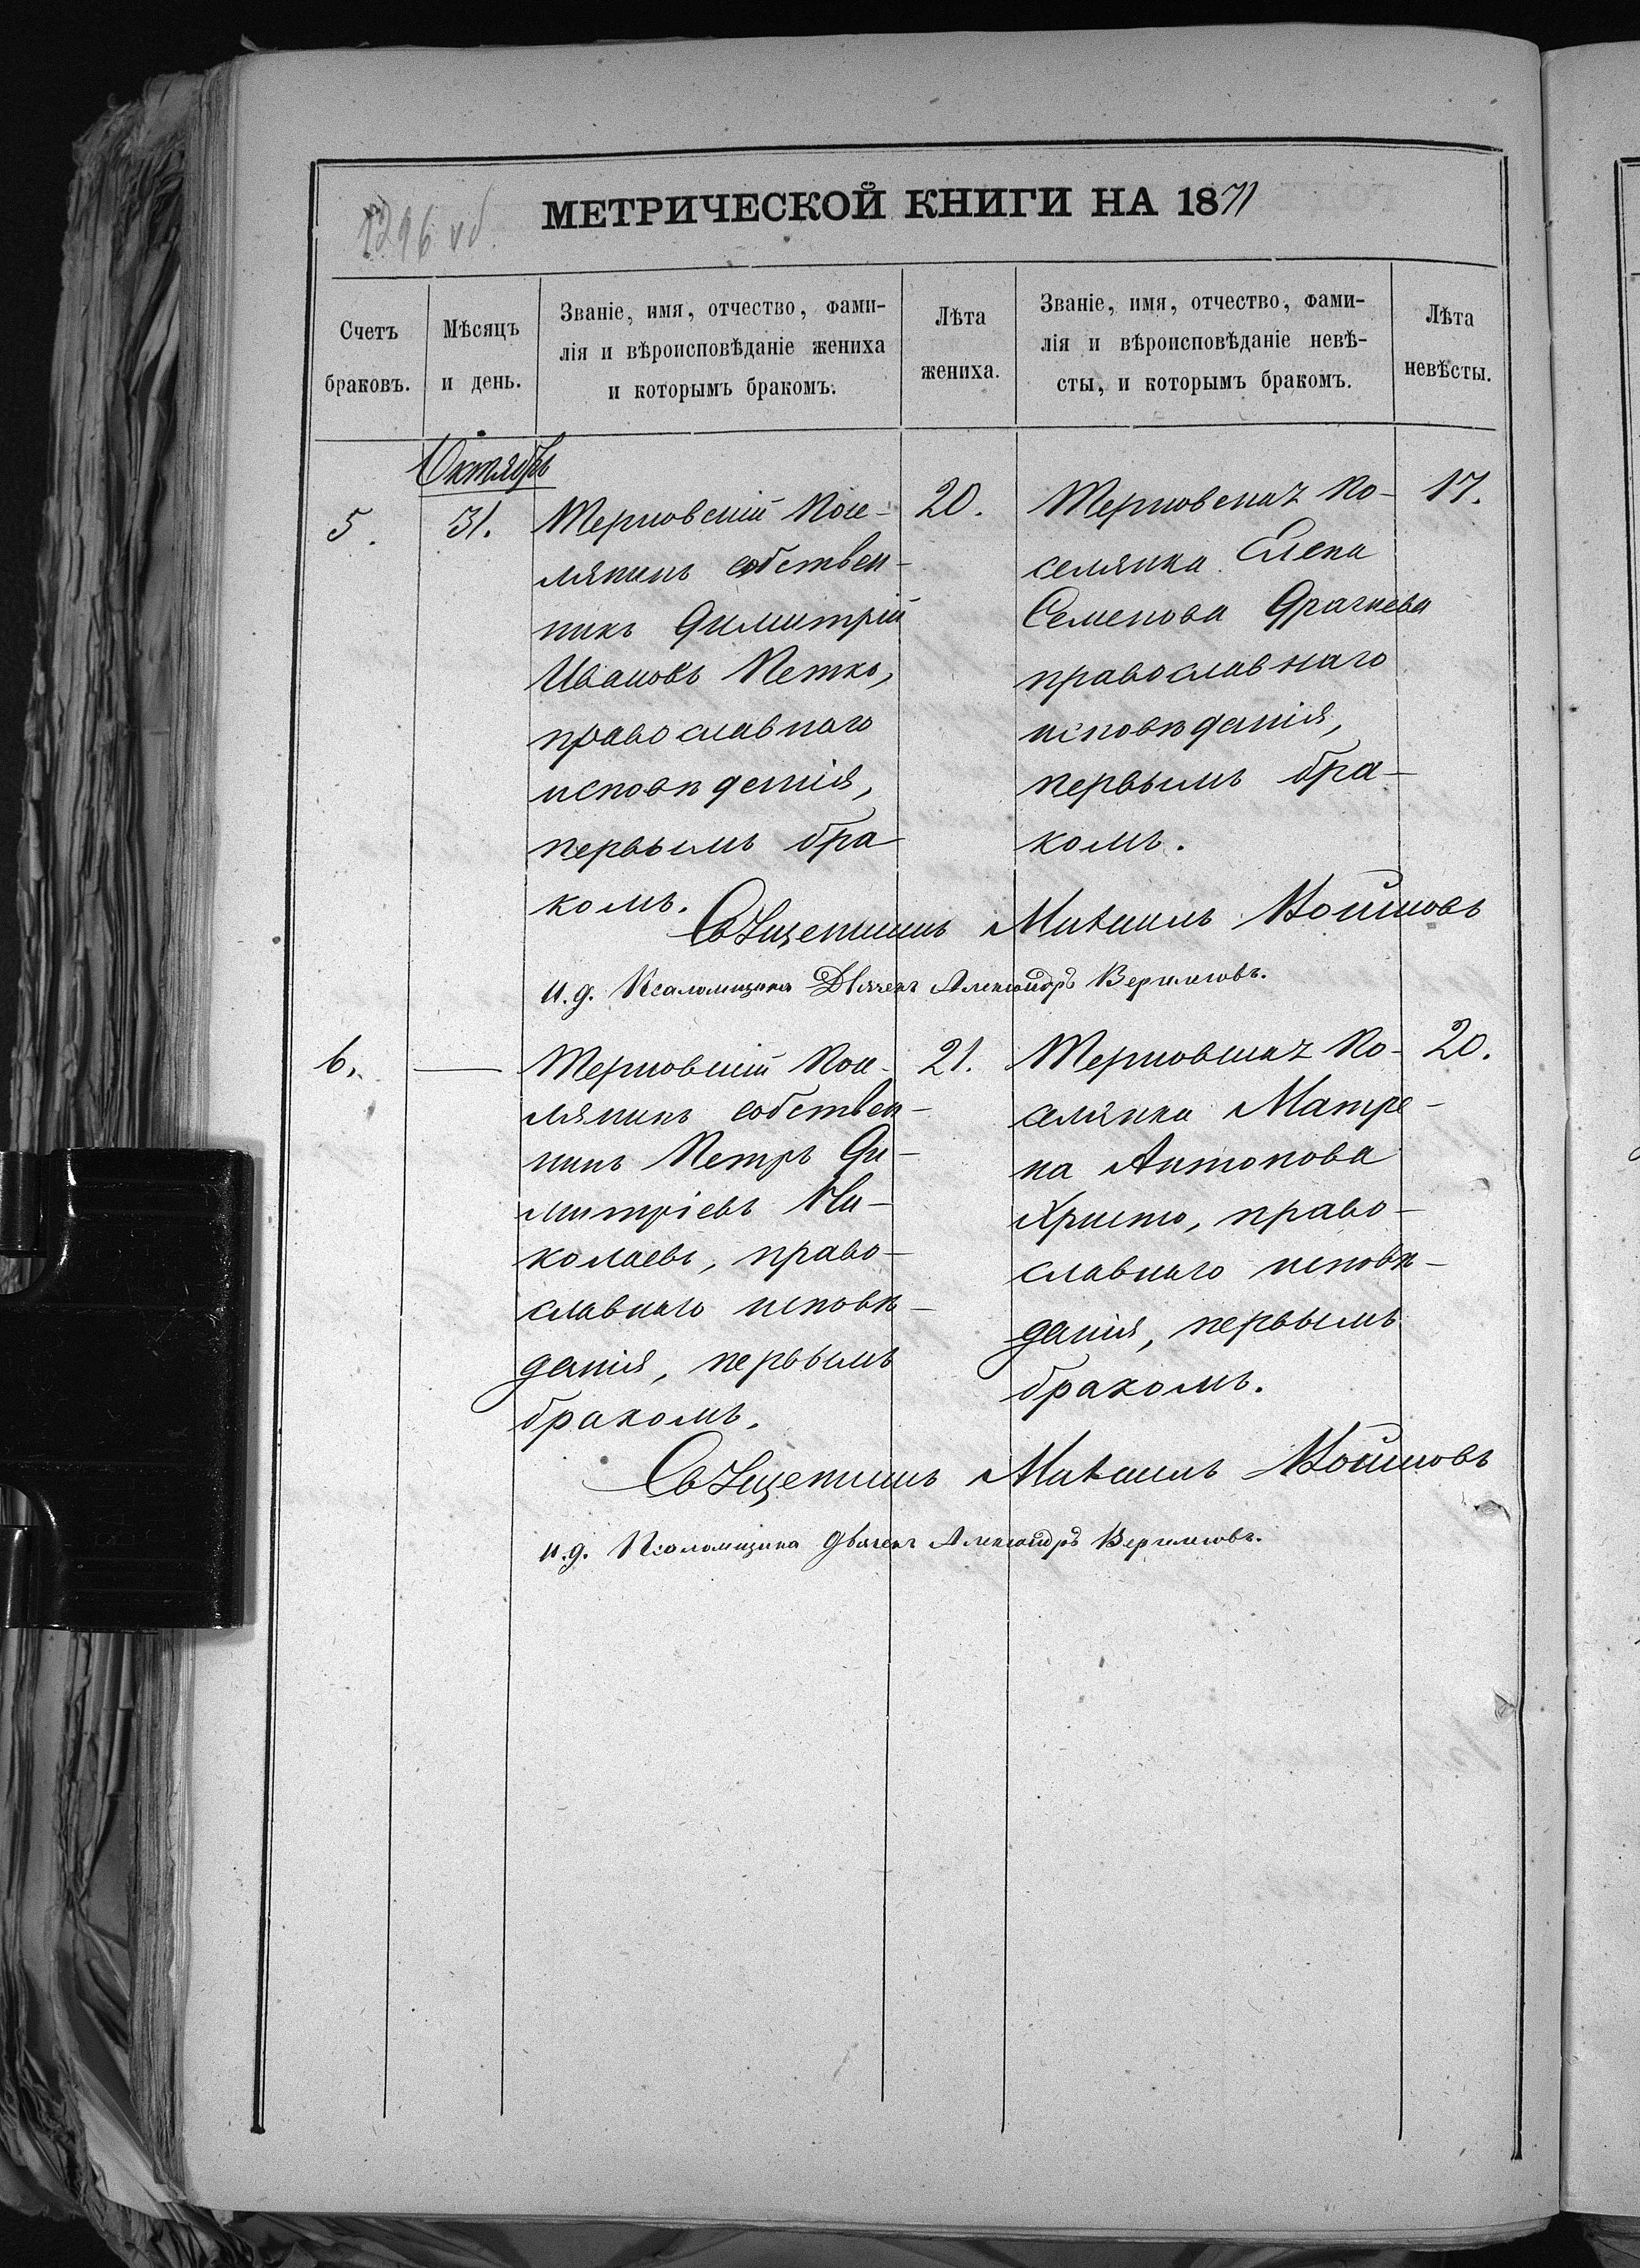 1296 об.
МЕТРИЧЕСКОЙ КНИГИ НА 1871
Счетъ
браковъ.
Мѣсяцъ
и день.
Званіе, имя, отчество, фами-
лія и вѣроисповѣданіе жениха
и которымъ бракомъ.
Лѣта
жениха.
Званіе, имя, отчество, фами-
лія и вѣроисповѣданіе невѣ-
сты, и которымъ бракомъ.
Лѣта
невѣсты.
Октябрь
5.
31.
Терновскій посе-
лянинъ собствен-
никъ Димитрій
Ивановъ Петко,
православнаго
исповѣданія,
первымъ бра-
комъ.
20.
Терновская по-
селянка Елена
Семенова Драгнева
православнаго
исповѣданія,
первымъ бра-
комъ.
17.
Священникъ Михаилъ Войновъ
И. д. Псаломщика Дьячекъ Александръ
6.
—
Терновскій посе-
лянинъ собствен-
никъ Петръ Ди-
митріевъ Ни-
колаевъ, право-
славнаго исповѣ-
данія, первымъ
бракомъ.
21.
Терновская по-
селянка Матре-
на Антонова
Христо, право-
славнаго исповѣ-
данія, первымъ
бракомъ.
20.
Священникъ Михаилъ Войновъ
И. д. Псаломщика Дьячекъ Александръ